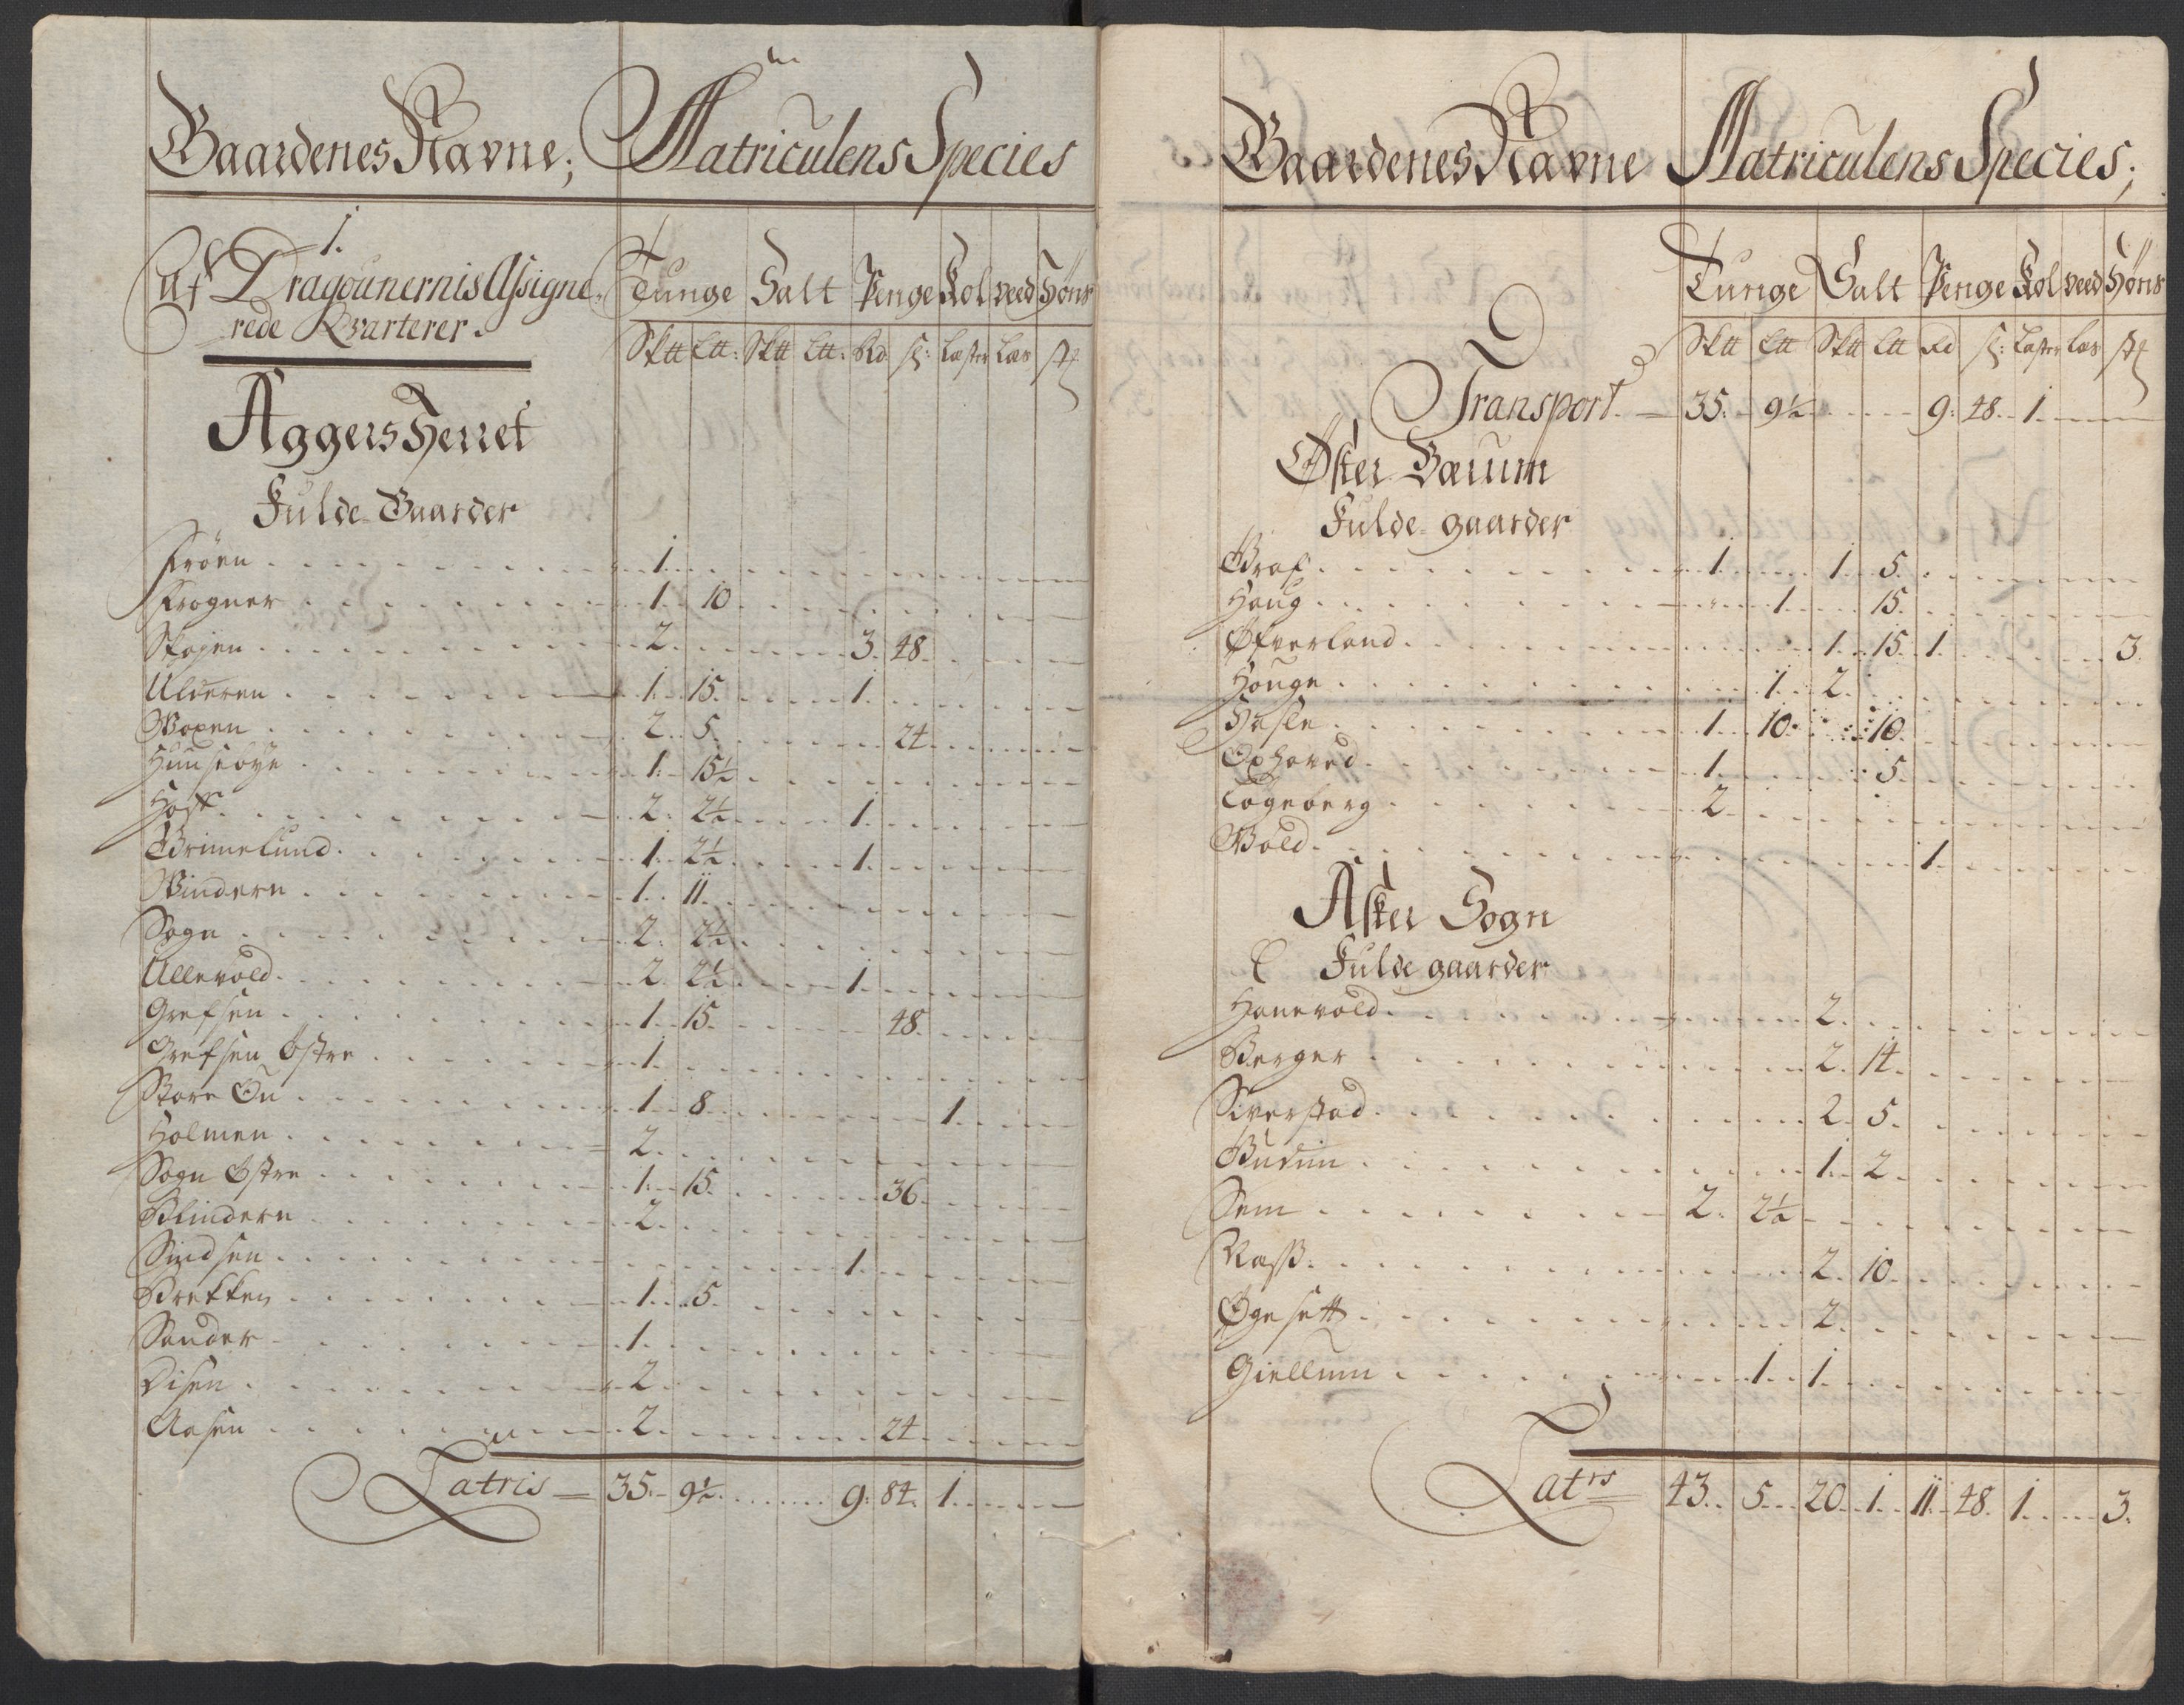 Gaardenes Navne; Matriculens Species
1.
Af Dragounernis Assigne-
rede Qvarterer.
Tunge Salt Penge Kol veed Høns
Sktt Ltt: Sktt Ltt: Rd ſl: Læster Læs
Aggers Herret
Fulde Gaarder
Fröen 1.
Frogner 1. 10
Skøjen 2. 3. 48.
Ulderen 1. 15. 1.
Voxen 2. 5. 24.
Huuseöye 1. 15½
Hoff 2. 2½ 1.
Grimelund 1. 2½ 1.
Vindern 1. 11.
Sogn 2. 2½
Ullevold 2. 2½ 1.
Grefsen 1. 15. 48.
Grefsen Östre 1.
Store Ön 1. 8. 1.
Holmen 2.
Sogn Östre 1. 15. 36.
Blindern 2.
Sindsen 1.
Brekken 1. 5.
Sander 1.
Disen 2.
Aasen 2. 24.
Latris 35. 9½ 9. 84. 1.
Gaardenes Navne Matriculens Species;
Tunge Salt Penge Kol veed Høns
Sktt Ltt Sktt Ltt Rd ſl: Læster Læs
Transport. 35. 9½ 9. 48. 1.
Øster Bærum
Fulde gaarder
Graf 1. 1. 5.
Haug 1. 15.
Øfverland 1. 15. 1. 3.
Houge 1. 2.
Hasle 1. 10. 10.
Oxhoved 1. 5.
Løgeberg 2.
Vold 1.
Asker Sogn
Fulde gaarder
Hanevold 2.
Berger 2. 14.
Siverstad 2. 5.
Budim 1. 2.
Sem 2. 2½
Nass 2. 10.
Øgesett 2.
Giellum 1. 1.
Latrs 43. 5. 20. 1. 11. 48. 1. 3.